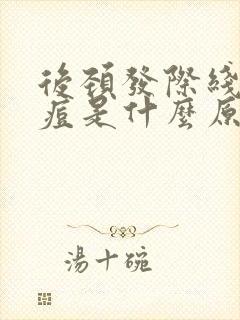 後頸發際綫
痘是什麼原
湯十碗